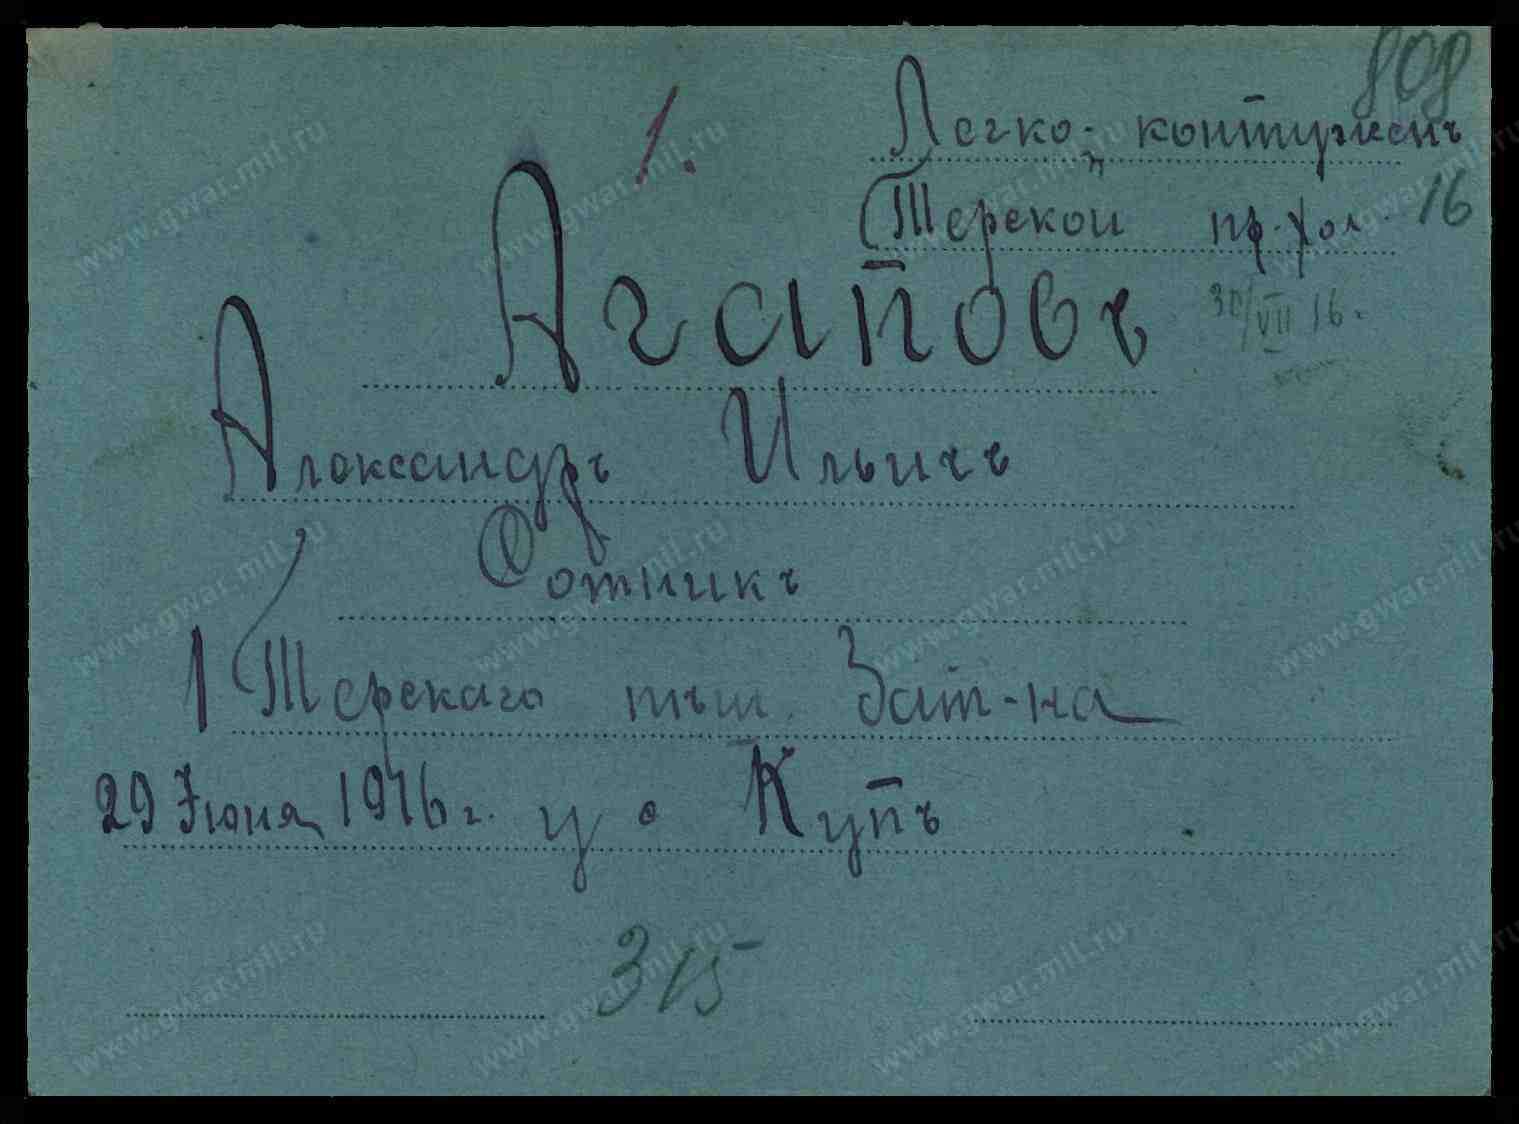 808
1.
Легко-контуженъ
Терской пр. хол. 16
Агаповъ
30/VII 16.
Александръ Ильичъ
Сотникъ
1 Терскаго пѣш. Бат-на
29 Іюня 1916 г. у о Купъ
315
www.gwar.mil.ru